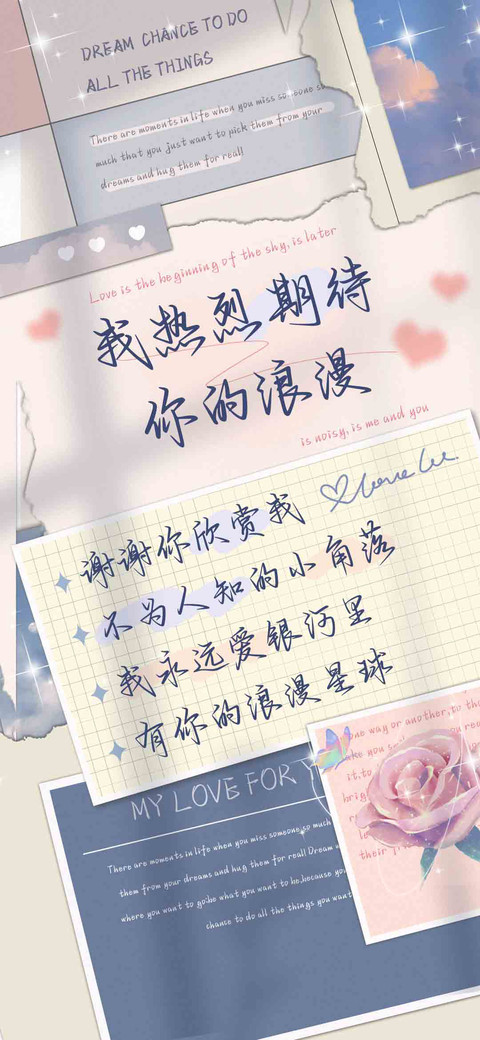 DREAM CHANCE TO DO
ALL THE THINGS
There are moments in life when you miss someone so
much that you just want to pick them from your
dreams and hug them for real!
Love is the beginning of the shy, is later
我热烈期待
你的浪漫
is noisy, is me and you
love
谢谢你欣赏我
不为人知的小角落
我永远爱银河里
有你的浪漫星球
one way or another, to th
ke you
it, to
their
MY LOVE FOR Y
There are moments in life when you miss someone so much
them from your dreams and hug them for real! Dream
where you want to go; be what you want to be, because you
chance to do all the things you want